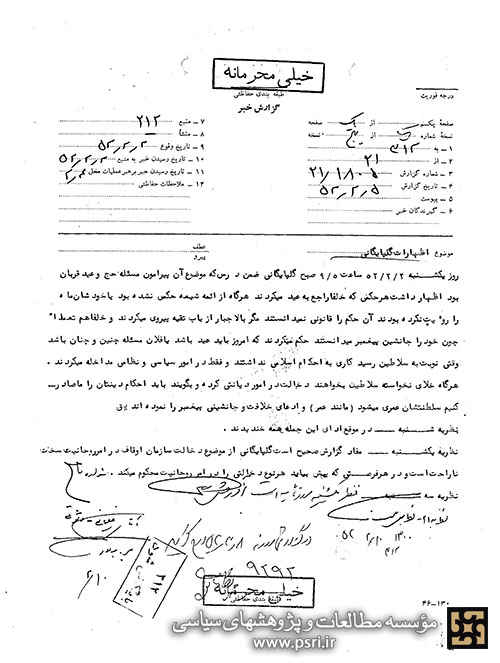 خیلی محرمانه
طبقه بندی حفاظتی
گزارش خبر
درجه فوریت
صفحه یکم از یک صفحه
نسخه شماره از پنج نسخه
۱ - به ۳۱۲
۲ - از ۲۱
۳ - شماره گزارش ۲۱/۱۸۰۵
۴ - تاریخ گزارش ۵۲/۲/۵
۵ - پیوست
۶ - گیرندگان خبر
۷ - منبع ۲۱۲
۸ - منشأ
۹ - تاریخ وقوع ۵۲/۲/۲
۱۰ - تاریخ رسیدن خبر به منبع ۵۲/۲/۲
۱۱ - تاریخ رسیدن خبر برهبر عملیات محل
۱۲ - ملاحظات حفاظتی
موضوع اظهارات گلپایگانی
عطف
پیرو
روز یکشنبه ۵۲/۲/۲ ساعت ۹/۵ صبح گلپایگانی ضمن درس که موضوع آن پیرامون مسئله حج و عید قربان
بود اظهار داشت هر حکمی که خلفا راجع به عید میکردند هرگاه از ائمه شیعه حکمی نشده بود یا خودشان ماه
را رویت نکرده بودند آن حکم را قانونی نمیدانستند مگر بالاجبار از باب تقیه پیروی میکردند و خلفا هم
چون خود را جانشین پیغمبر میدانستند حکم میکردند که امروز باید عید باشد یا فلان مسئله چنین و چنان باشد
وقتی نوبت به سلاطین رسید کاری به احکام اسلامی نداشتند و فقط در امور سیاسی و نظامی مداخله میکردند .
هرگاه خدای نخواسته سلاطین بخواهند دخالت در امور دیانتی کرده و بگویند باید احکام دینتان را ما صادر
کنیم سلطنتشان عمری میشود ( مانند عمر ) و ادعای خلافت و جانشینی پیغمبر را نموده اند
نظریه شنبه ـــ در موقع ادای این جمله همه خندیدند .
نظریه یکشنبه ـــ مفاد گزارش صحیح است گلپایگانی از موضوع دخالت سازمان اوقاف در امر روحانیت سخت
ناراحت است و در هر فرصتی که پیش بیاید هر نوع دخالتی را در امر روحانیت محکوم میکند .
نظریه سه شنبه ـــ نظریه یکشنبه مورد تأیید است
۹۲۹۲
خیلی محرمانه
طبقه بندی حفاظتی
۴۶-۱۳۰
مؤسسه مطالعات و پژوهشهای سیاسی
www.psri.ir